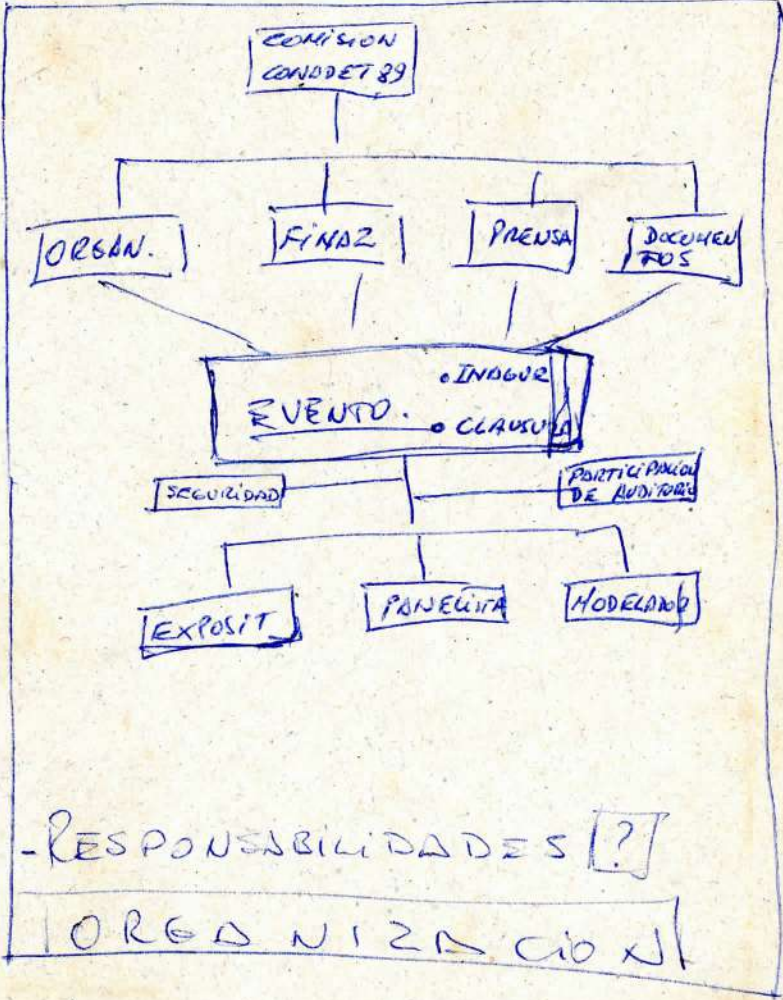 COMISION
CONADET 89
ORGAN.
FINAZ
PRENSA
DOCUMEN
TOS
• INAGUR
EVENTO.
• CLAUSURA
SEGURIDAD
PARTICIPACION
DE AUDITORIO
EXPOSIT
PANELISTA
MODELADOR
- RESPONSABILIDADES ?
ORGANIZACION